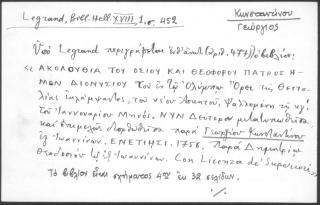 Legrand, Bibl. Hell. XVIII, 1, σ. 452
Κωνσταντίνου
Γεώργιος
Ὑπὸ Legrand περιγράφεται ἐπὶ (ἀριθ. 477) βιβλίον:
« ΑΚΟΛΟΥΘΙΑ ΤΟΥ ΟΣΙΟΥ ΚΑΙ ΘΕΟΦΟΡΟΥ ΠΑΤΡΟΣ Η-
ΜΩΝ ΔΙΟΝΥΣΙΟΥ Τοῦ ἐν τῷ Ὀλύμπῳ Ὄρει τῆς Θεττα-
λίας ἐκλάμψαντος, τοῦ νέου Ἀσκητοῦ, Ψαλλομένη τῇ κγʹ
τοῦ Ἰαννουαρίου Μηνός. ΝΥΝ Δεύτερον μετατυπωθεῖσα
καὶ ἐπιμελῶς διορθωθεῖσα παρὰ Γεωργίου Κωνσταντίνου
ἐξ Ἰωαννίνων. ΕΝΕΤΙΗΣΙ. 1756. Παρὰ Δημητρίῳ
Θεοδοσίου τῷ ἐξ Ἰωαννίνων. Con Licenza de' Superiori »
Τὸ βιβλίον εἶναι σχήματος 4ον ἐκ 32 σελίδων.